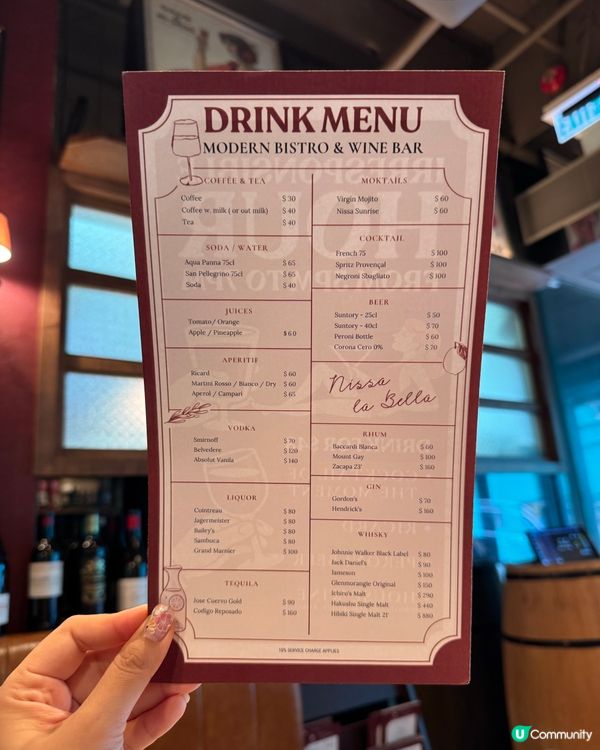 DRINK MENU
MODERN BISTRO & WINE BAR
COFFEE & TEA
Coffee $ 30
Coffee w. milk ( or oat milk) $ 40
Tea $ 40
SODA / WATER
Aqua Panna 75cl $ 65
San Pellegrino 75cl $ 65
Soda $ 40
JUICES
Tomato / Orange
Apple / Pineapple $ 60
APERITIF
Ricard $ 60
Martini Rosso / Bianco / Dry $ 60
Aperol / Campari $ 65
VODKA
Smirnoff $ 70
Belvedere $ 120
Absolut Vanila $ 140
LIQUOR
Cointreau $ 80
Jagermeister $ 80
Bailey's $ 80
Sambuca $ 80
Grand Marnier $ 100
TEQUILA
Jose Cuervo Gold $ 90
Codigo Reposado $ 160
MOKTAILS
Virgin Mojito $ 60
Nissa Sunrise $ 60
COCKTAIL
French 75 $ 100
Spritz Provençal $ 100
Negroni Sbagliato $ 100
BEER
Suntory - 25cl $ 50
Suntory - 40cl $ 70
Peroni Bottle $ 60
Corona Cero 0% $ 70
Nissa
la Bella
RHUM
Baccardi Blanca $ 60
Mount Gay $ 100
Zacapa 23' $ 160
GIN
Gordon's $ 70
Hendrick's $ 160
WHISKY
Johnnie Walker Black Label $ 80
Jack Daniel's $ 90
Jameson $ 100
Glenmorangie Original $ 150
Ichiro's Malt $ 290
Hakushu Single Malt $ 440
Hibiki Single Malt 21' $ 880
10% SERVICE CHARGE APPLIES
EXIT
U Community